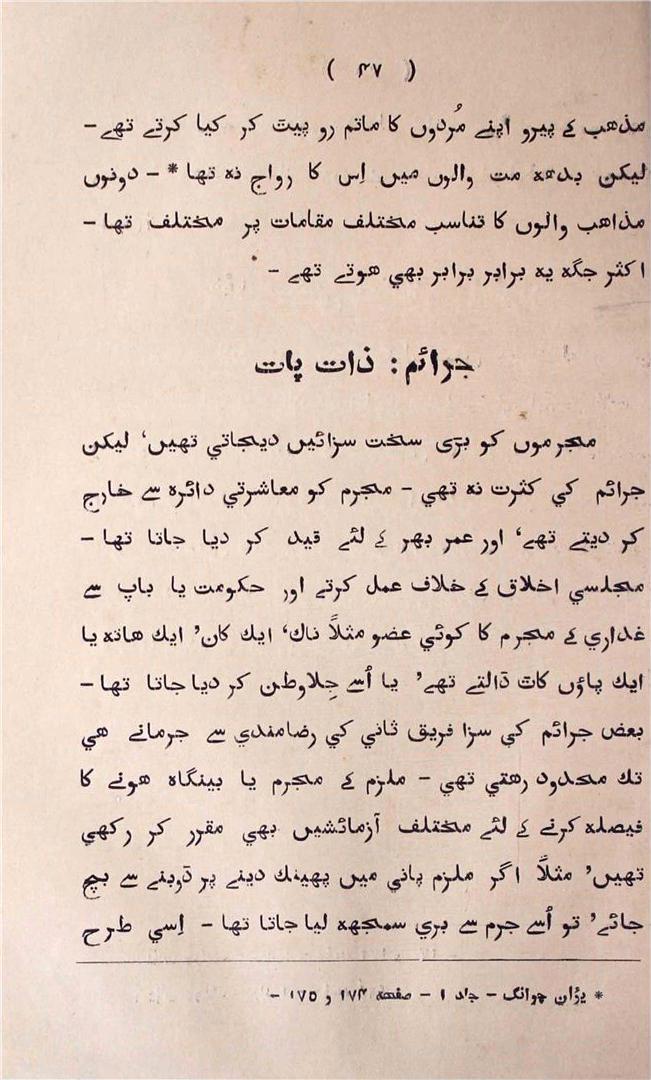 ( ۴۷ )
مذهب کے پیرو اپنے مُردوں کا ماتم رو پیٹ کر کیا کرتے تھے —
لیکن بدهه مت والوں میں اِس کا رواج نه تھا * — دونوں
مذاهب والوں کا تناسب مختلف مقامات پر مختلف تھا —
اکثر جگه یه برابر برابر بھي هوتے تھے —
جرائم : ذات پات
مجرموں کو بڑي سخت سزائیں دیجاتي تھیں، لیکن
جرائم کي کثرت نه تھي — مجرم کو معاشرتي دائره سے خارج
کر دیتے تھے، اور عمر بھر کے لئے قید کر دیا جاتا تھا —
مجلسي اخلاق کے خلاف عمل کرتے اور حکومت یا باپ سے
غداري کے مجرم کا کوئي عضو مثلاً ناك، ایك کان، ایك هاتهه یا
ایك پاؤں کاٹ ڈالتے تھے، یا اُسے جِلاوطن کر دیا جاتا تھا —
بعض جرائم کي سزا فریق ثاني کي رضامندي سے جرمانے هي
تك محدود رهتي تھي — ملزم کے مجرم یا بینگاه هونے کا
فیصله کرنے کے لئے مختلف آزمائشیں بھي مقرر کر رکھي
تھیں، مثلاً اگر ملزم پاني میں پھینك دینے پر ڈوبنے سے بچ
جائے، تو اُسے جرم سے بري سمجھه لیا جاتا تھا — اِسي طرح
* یؤان چوانگ — جلد ۱ — صفحه ۱۷۴ و ۱۷۵ —